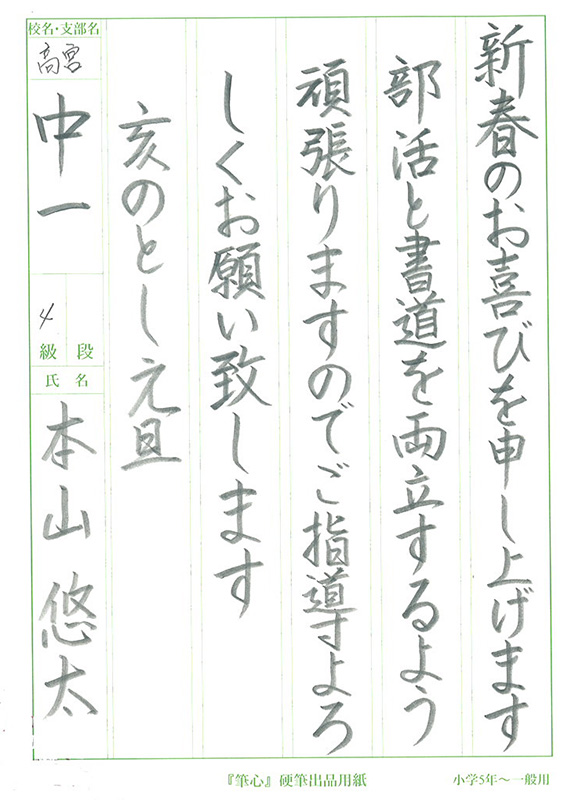 新春のお喜びを申し上げます
部活と書道を両立するよう
頑張りますのでご指導よろ
しくお願い致します
亥のとし元旦
校名・支部名
高宮
中一
4
級 段
氏名
本山悠太
『筆心』硬筆出品用紙
小学5年〜一般用